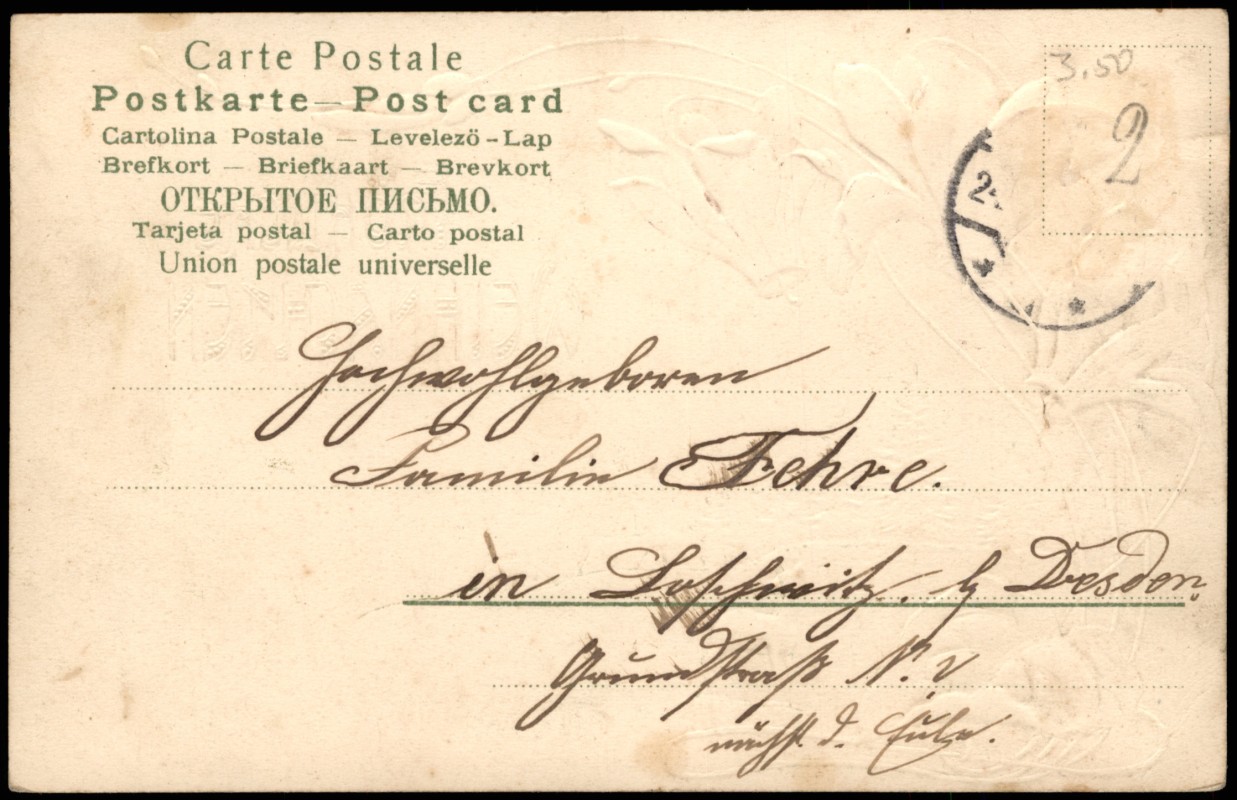 Carte Postale
Postkarte — Post card
Cartolina Postale — Levelezö-Lap
Brefkort — Briefkaart — Brevkort
ОТКРЫТОЕ ПИСЬМО.
Tarjeta postal — Carto postal
Union postale universelle
3.50
2
2
Hochwohlgeboren
Familie Fehre.
in Loschwitz. b Dresden.
Grundstraß N.
nächst d. Eule.